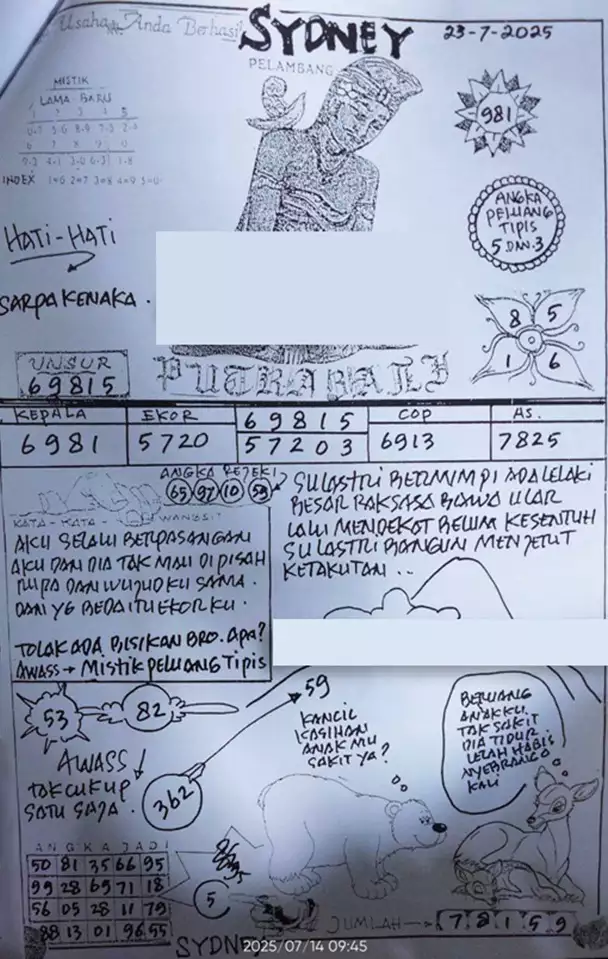 Usaha Anda Berhasil
SYDNEY
23-7-2025
PELAMBANG
MISTIK
LAMA - BARU
INDEX 1=6 2=7 3=8 4=9 5=0
981
ANGKA
PELUANG
TIPIS
5 DAN 3
HATI-HATI
SARPAKENAKA.
8 5
1 6
UNSUR
69815
PUTRA BALI
KEPALA EKOR 69815 COP AS.
6981 5720 57203 6913 7825
ANGKA REJEKI
65 97 10 59
KATA - KATA - WANGSIT
AKU SELALU BERPASANGAN
AKU DAN DIA TAK MAU DI PISAH
RUPA DAN WUJUDKU SAMA.
DAN YG BEDA ITU EKORKU.
TOLAK ADA BISIKAN BRO. APA?
AWASS → MISTIK PELUANG TIPIS
SULASTRI BERMIMPI ADA LELAKI
BESAR RAKSASA BAWA ULAR
LALU MENDEKAT BELUM KESENTUH
SULASTRI BANGUN MENJERIT
KETAKUTAN ..
53 82
59
AWASS!
TAK CUKUP
SATU SAJA.
362
KANCIL
KASIHAN
ANAK MU
SAKIT YA?
BERUANG
ANAKKU
TAK SAKIT
DIA TIDUR.
LELAH HABIS
NYEBRANG
KALI
ANGKA JADI
50 81 35 66 95
99 28 69 71 18
56 05 28 11 79
88 13 01 96 55
5
JUMLAH → 7 8 1 5 9
SYDNEY
2025/07/14 09:45